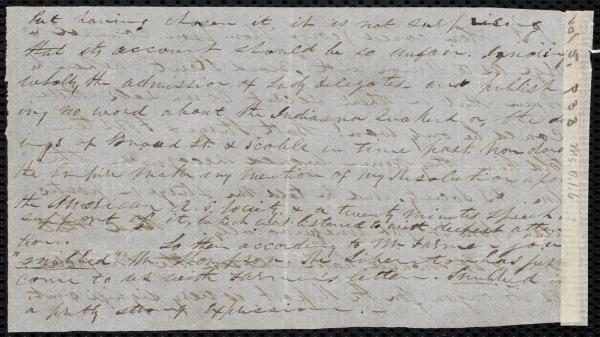 but having chosen it, it is not surprising
that its account should be so unfair. Ignoring
wholly the admission of Lady delegates and publish
ing no word about the Indiana Quakers or the do
ings of Broad St & Scoble in time past. Nor does
the Empire make any mention of my Resolution upon
the American A. S. Society & a twenty minutes speech in
support of it, which was listened to with deepest atten
tion.. So then according to Mr Farmer you
"snubbed" Mr Thompson. The Liberator has just
come to us with Farmer's letter. Snubbed is
a pretty strong expression. —